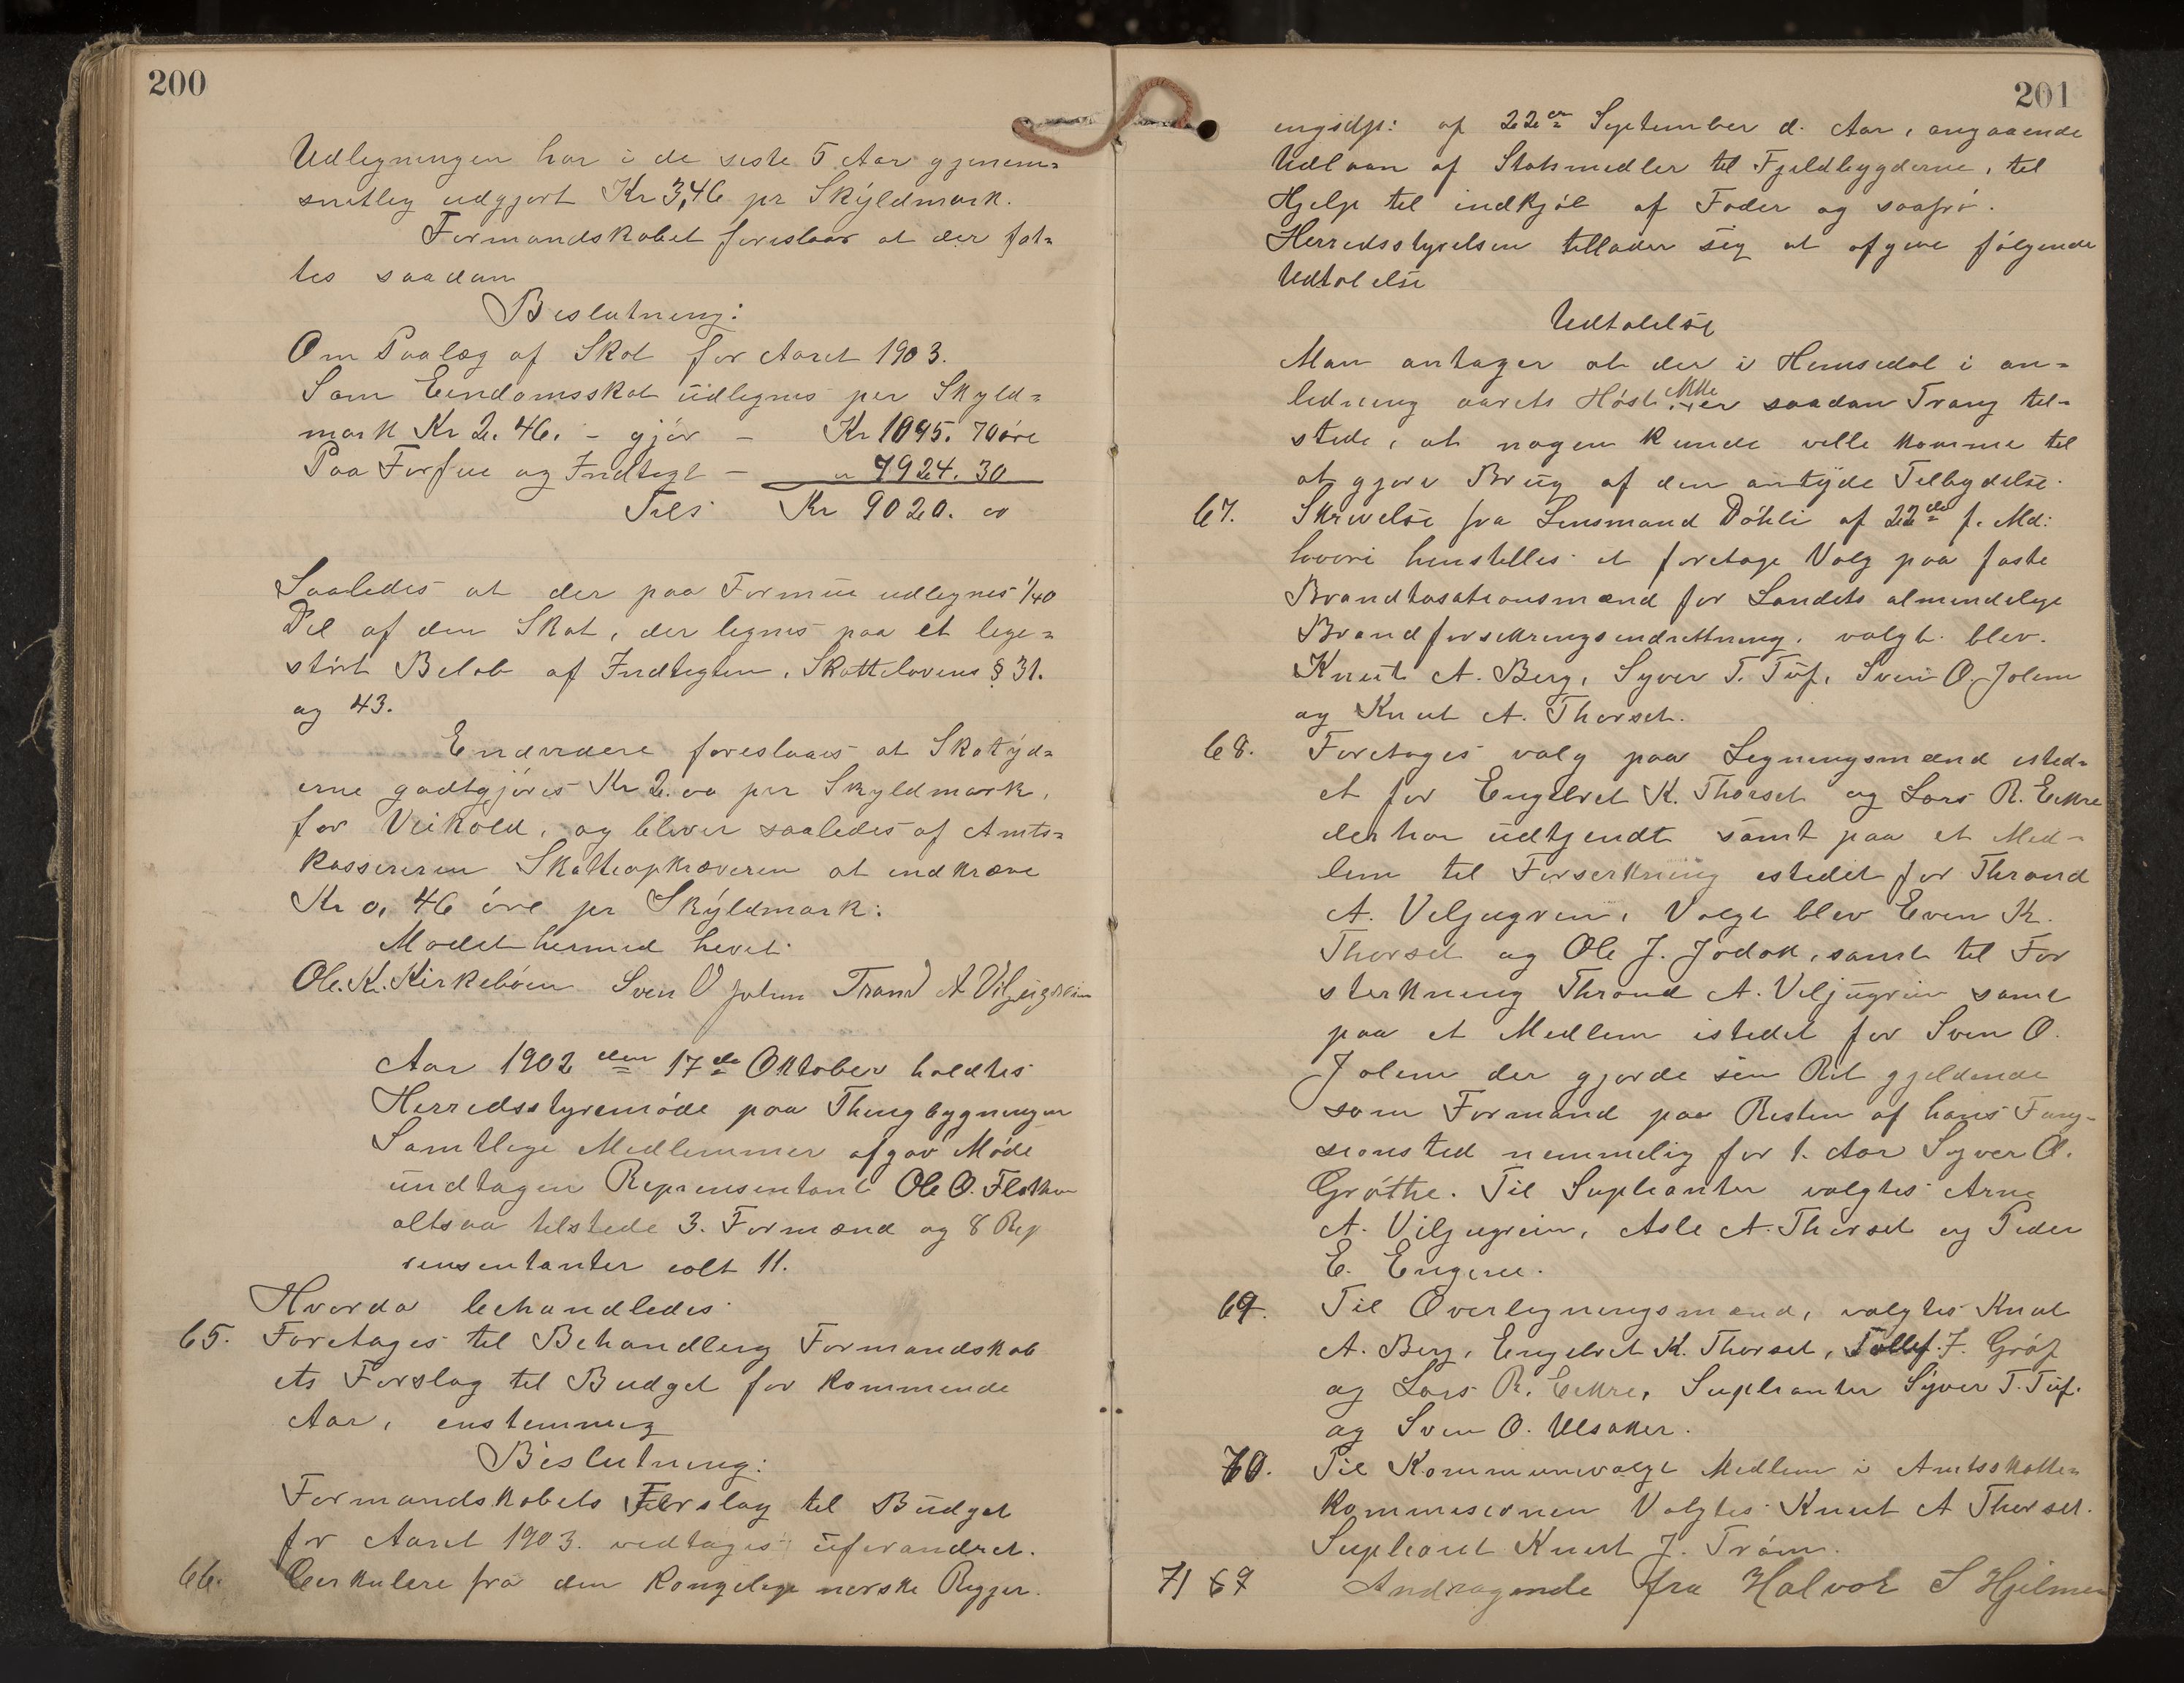 200
Udlegningen har i de siste 5 Aar gjenem=
snitlig udgjort Kr 3,46 pr Skyldmark.
Formandskabet foreslaar at der fat=
tes saadan
Beslutning:
Om Paalæg af Skat for Aaret 1903.
Som Eiendomsskat udlignes per Skyld=
mark Kr 2.46. – gjør – Kr 1095. 70 øre
Paa Formue og Indtegt – " 7924. 30
Tils Kr 9020. 00
Saaledes at der paa Formue udlegnes 1/40
Del af den Skat, der legnes paa et lige=
stort Beløb af Indtegten, Skattelovens § 31.
og 43.
Endvidere foreslaaes at Skatyd=
erne godtgjøres Kr 2.00 per Skyldmark,
for Veihold, og bliver saaledes af Amts=
kassereren Skatteopkræveren at indkræve
Kr 0,46 øre pr Skyldmark:
Mødet hermed hevet.
Ole. K. Kirkebøen Sven O Jolem Trand A Viljugrein
Aar 1902 den 17de Oktober holdtes
Herredsstyremøde paa Thingbygningen
Samtlige Medlemmer afgav Møde
undtagen Reprensentant Ole O. Flathen
altsaa tilstede 3. Formænd og 8 Rep
rensentanter ialt 11.
Hvorda behandledes
65. Foretages til Behandling Formandskab
ets Forslag til Budget for kommende
Aar, enstemmig
Beslutning:
Formandskabets Forslag til Budget
for Aaret 1903. vedtages uforandret.
66. Cirkulere fra den Kongelige norske Regjer.
201
ingsdp: af 22de September d. Aar, angaaende
Udlaan af Statsmedler til Fjeldbygderne, til
Hjelp til indkjøb af Foder og saafrø.
Herredsstyrelsen tillader sig at afgive følgende
Udtalelse
Udtalelse
Man antager at der i Hemsedal i an=
ledning aarets Høst ikke er saadan Trang til=
stede, at nogen kunde ville komme til
at gjøre Brug af den antyde Tilbydelse.
67. Skrivelse fra Lensmand Døkli af 22de f. Md:
hvori henstilles at foretage Valg paa faste
Brandtasationsmænd for Landets almindelige
Brandforsikringsindretning. valgt blev.
Knut A. Berg, Syver T. Tuf, Sven O. Jolem
og Knut A. Thorset.
68. Foretages valg paa Legningsmænd isted=
et for Engebret K. Thorset og Lars R. Eikre
der har udtjendt samt paa et Med=
lem til Forsterkning istedet for Thrond
A. Viljugrein, Valgt blev Even K.
Thorset og Ole J. Jodok, samt til For
sterkning Thrond A. Viljugrein samt
paa et Medlem istedet for Sven O.
Jolem der gjorde sin Ret gjeldende
som Formand paa Resten af hans Fung-
sionstid nemmelig for 1. Aar Syver O.
Grøthe. Til Suplianter valgtes Arne
A. Viljugrein, Asle A. Thorset og Peder
E. Engene.
69. Til Overlegningsmænd, valgtes Knut
A. Berg, Engebret K. Thorset, Tollef. J. Grøf
og Lars R. Eikre, Suplianter Syver T. Tuf.
og Sven O. Ulsaker.
70. Til Kommunevalgt Medlem i Amtsskatte=
kommisionen Valgtes Knut A Thorset.
Supliant Knut J. Trøim.
71 69 Andragende fra Halvor S Hjelmen